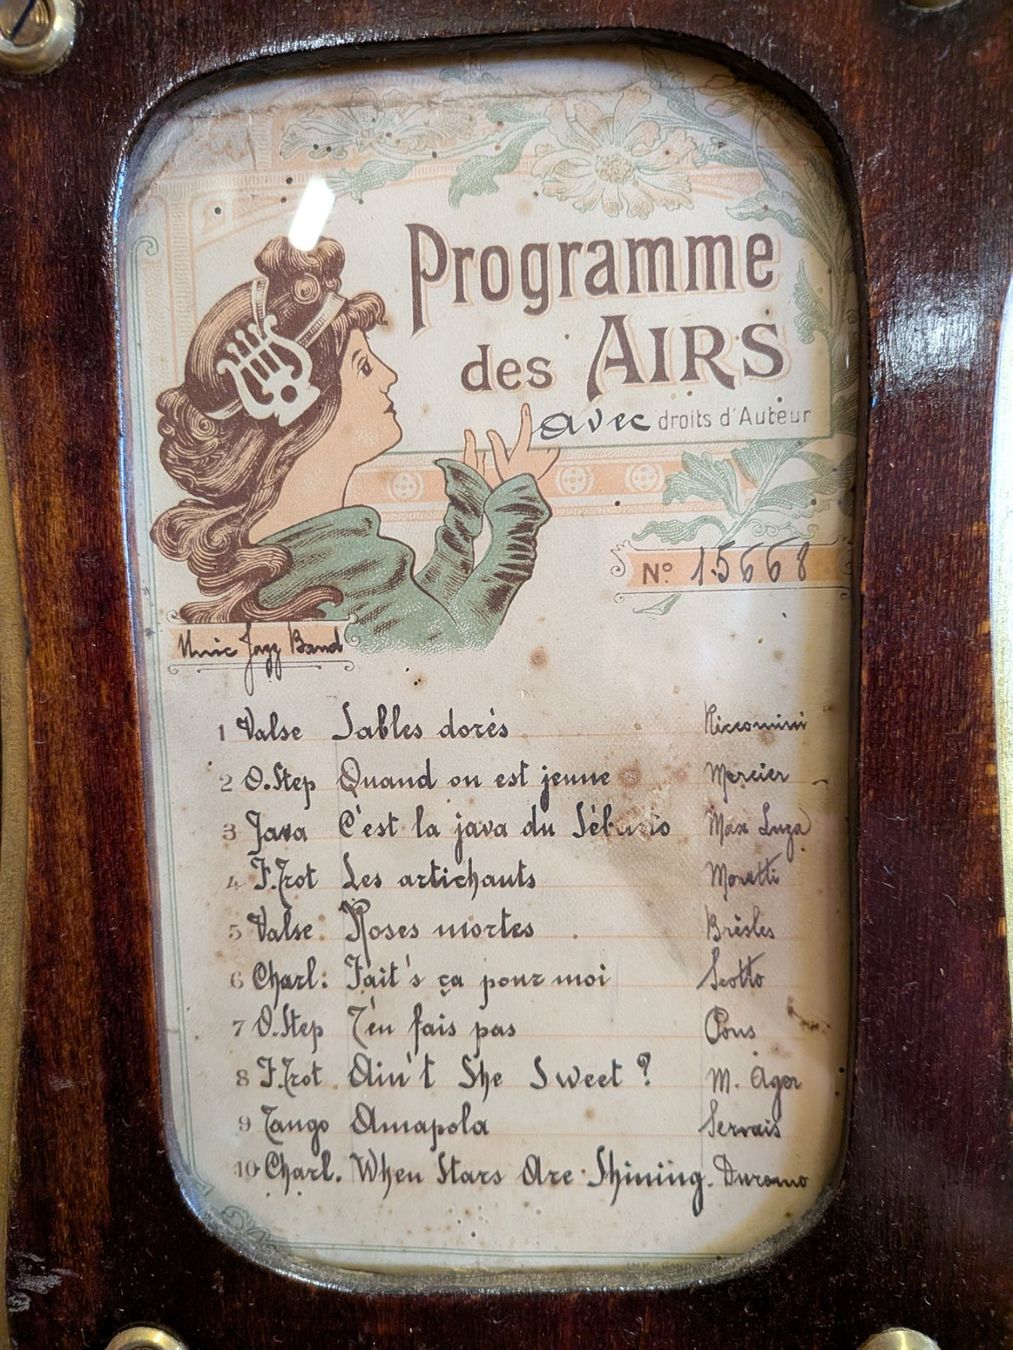 Programme
des AIRS
avec droits d'Auteur
Nº 15668
Unic Jazz Band
1 Valse Sables dorés Niccomini
2 O.Step Quand on est jeune Mercier
3 Java C'est la java du Max Luza
4 F.Trot Les artichauts Moretti
5 Valse Roses mortes Brèsles
6 Charl: Fait's ça pour moi Scotto
7 O.Step T'en fais pas Pons
8 F.Trot Ain't She Sweet ? M. Ager
9 Tango Amapola Servais
10 Charl. When Stars Are Shining. Duromo